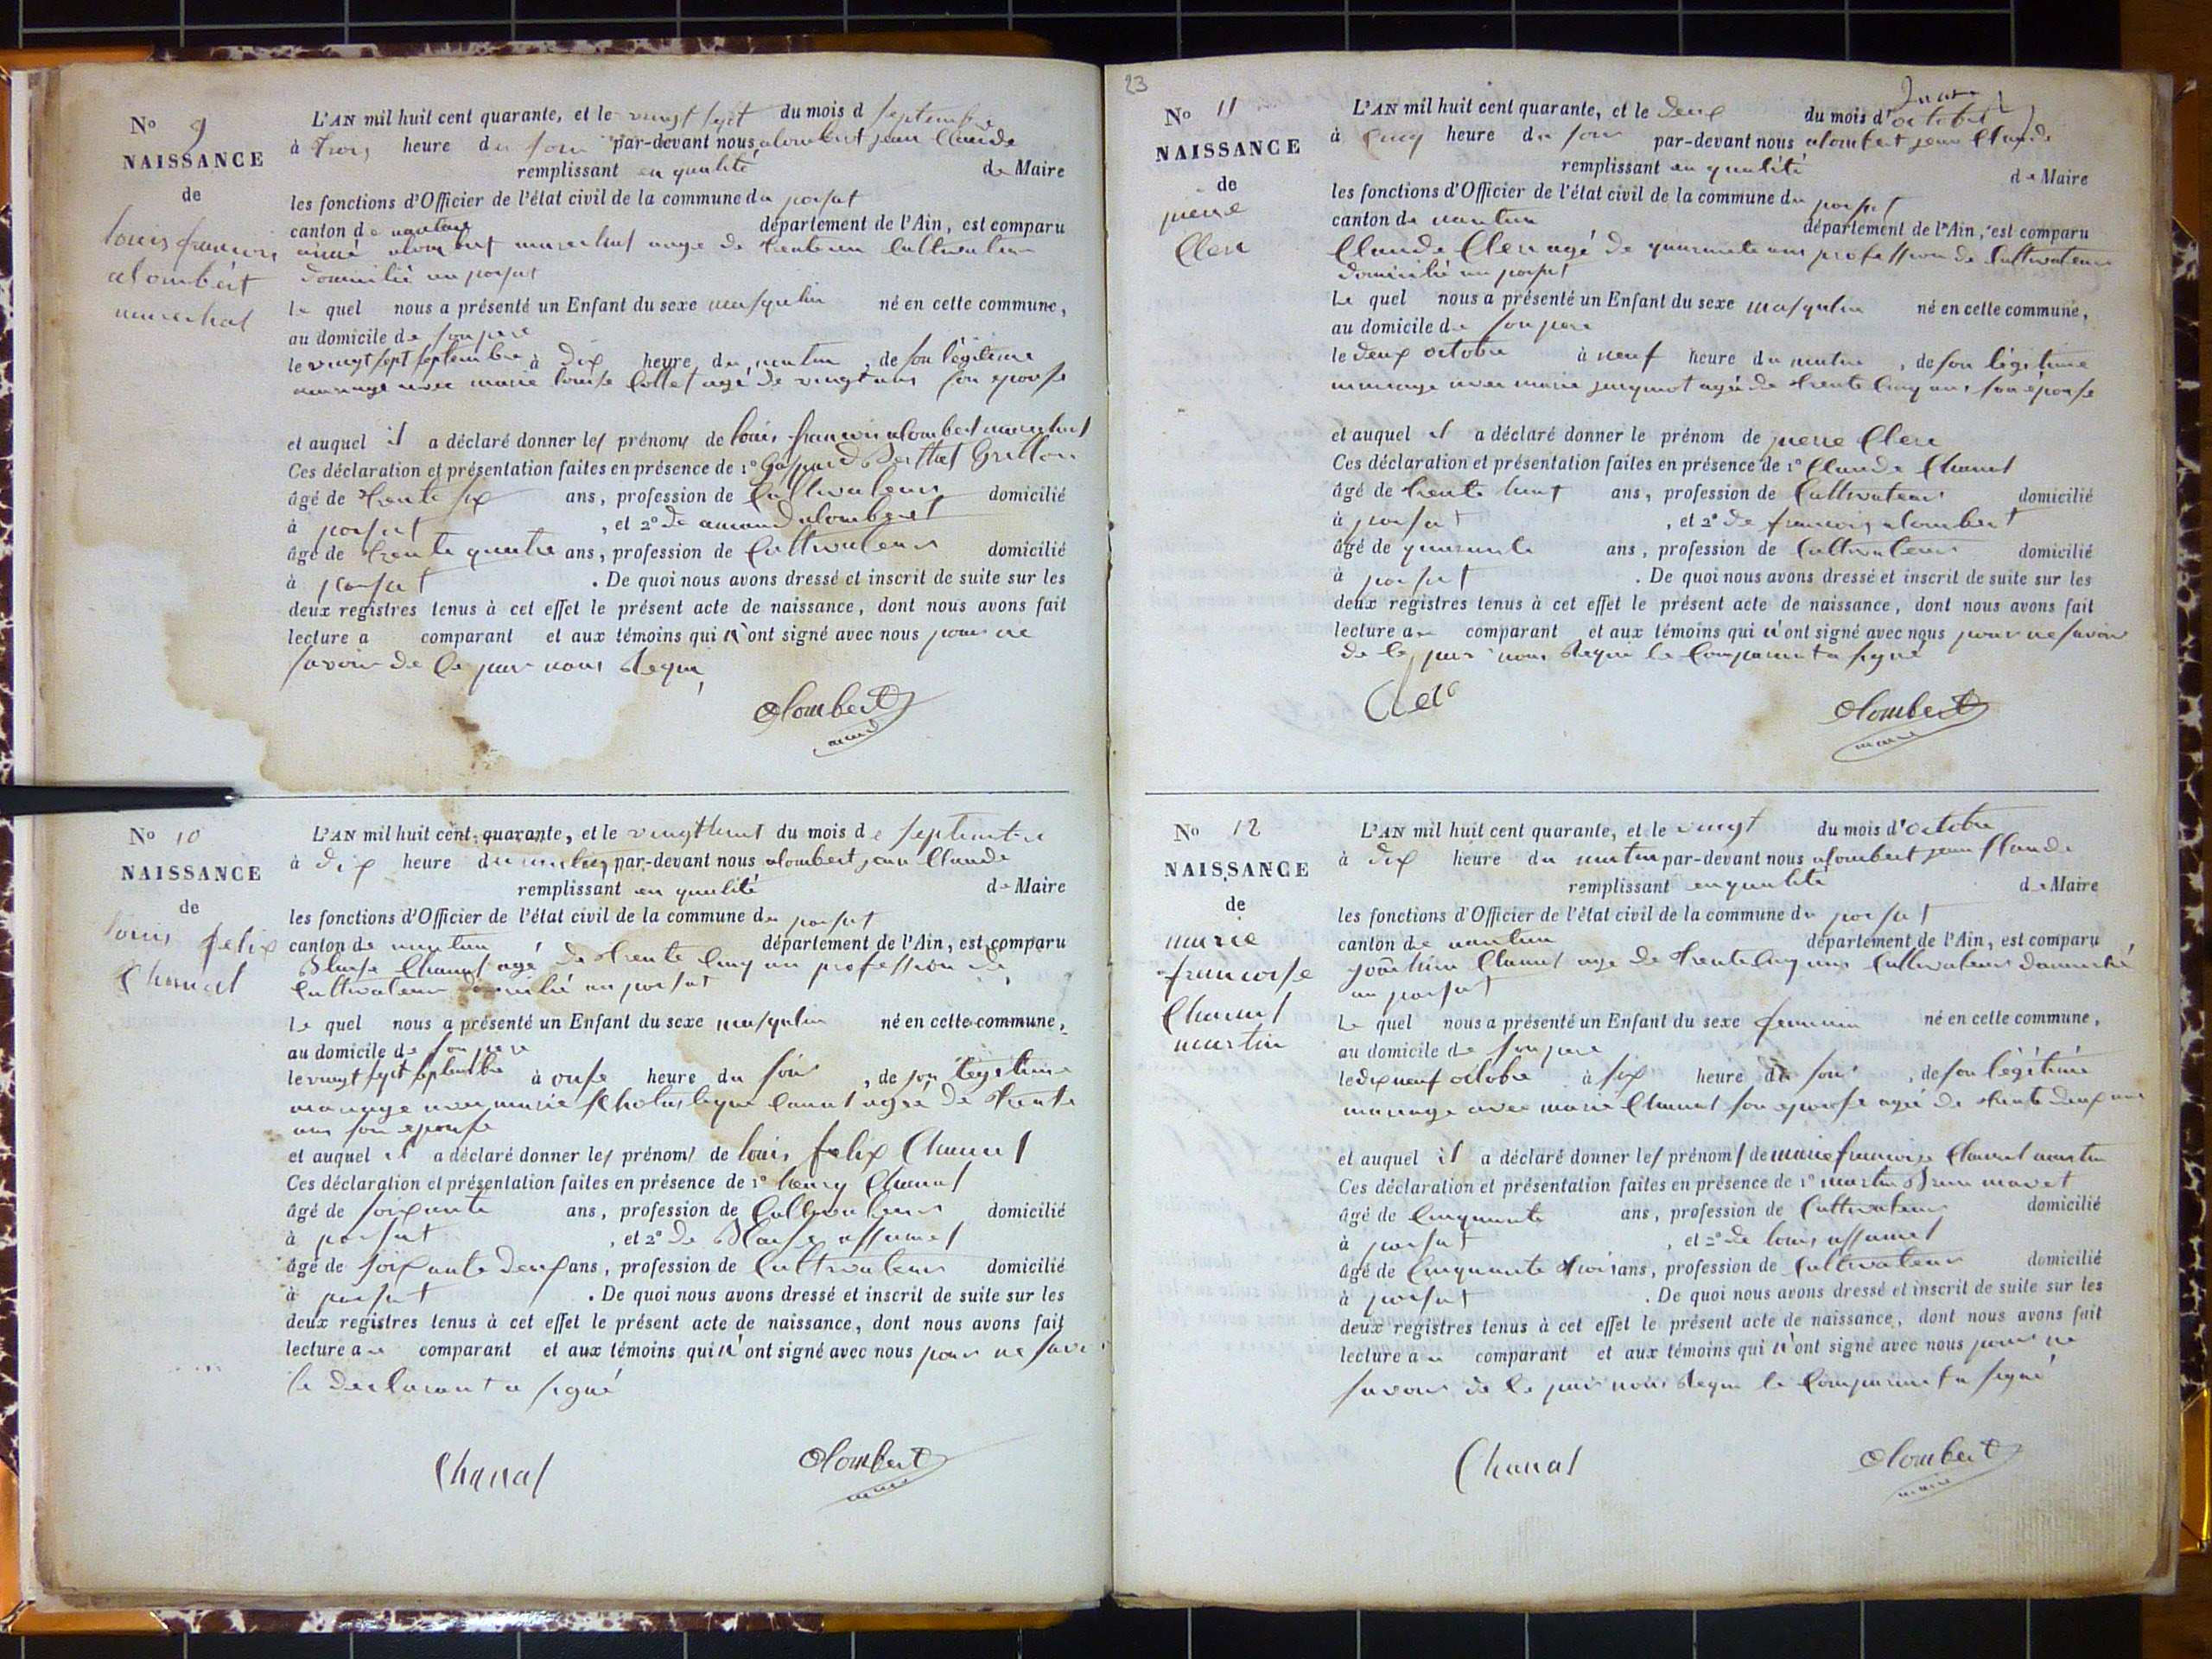 N° 9
NAISSANCE
de
louis françois
alombert
marechal
L'AN mil huit cent quarante, et le vingt sept du mois d septembre
à trois heure du soir par-devant nous alombert jean Claude
remplissant en qualité de Maire
les fonctions d'Officier de l'état civil de la commune du poisat
canton de nantua département de l'Ain, est comparu
aimé alombert marechal agé de trente un Cultivateur
domicilié au poisat
le quel nous a présenté un Enfant du sexe masqulin né en cette commune,
au domicile de son pere
le vingt sept septembre à dix heure du matin, de son légitime
mariage avec marie louise Collet agé de vingt ans son epouse
et auquel il a déclaré donner les prénoms de louis francois alombert marechal
Ces déclaration et présentation faites en présence de 1° Gaspard Berthet Grillon
âgé de trente six ans, profession de Cultivateur domicilié
à poisat, et 2° de amand alombert
âgé de trente quatre ans, profession de Cultivateur domicilié
à poisat. De quoi nous avons dressé et inscrit de suite sur les
deux registres tenus à cet effet le présent acte de naissance, dont nous avons fait
lecture a comparant et aux témoins qui n'ont signé avec nous pour ne
savoir de ce par nous requi
alombert
maire
N° 10
NAISSANCE
de
louis felix
Chanal
L'AN mil huit cent quarante, et le vingt huit du mois de septembre
à dix heure du matin par-devant nous alombert jean Claude
remplissant en qualité de Maire
les fonctions d'Officier de l'état civil de la commune du poisat
canton de nantua département de l'Ain, est comparu
Blaise Chanal agé de trente cinq an profession de
Cultivateur domicilié au poisat
le quel nous a présenté un Enfant du sexe masqulin né en cette commune,
au domicile de son pere
le vingt sept septembre à onse heure du soir, de son légitime
mariage avec marie scholastique Canal agée de trente
ans son epouse
et auquel il a déclaré donner les prénoms de louis felix Chanal
Ces déclaration et présentation faites en présence de 1° henry Chanal
âgé de soixante ans, profession de Cultivateur domicilié
à poisat, et 2° de Blaise assamet
âgé de soixante deux ans, profession de Cultivateur domicilié
à poisat. De quoi nous avons dressé et inscrit de suite sur les
deux registres tenus à cet effet le présent acte de naissance, dont nous avons fait
lecture au comparant et aux témoins qui n'ont signé avec nous pour ne savoir
le declarant a signé
Chanal
alombert
maire
23
N° 11
NAISSANCE
de
pierre
Clerc
L'AN mil huit cent quarante, et le deux du mois d'octobre
à cinq heure du soir par-devant nous alombert jean Claude
remplissant en qualité de Maire
les fonctions d'Officier de l'état civil de la commune du poisat
canton de nantua département de l'Ain, est comparu
Claude Clerc agé de quarante ans profession de Cultivateur
domicilié au poisat
le quel nous a présenté un Enfant du sexe masqulin né en cette commune,
au domicile de son pere
le deux octobre à neuf heure du matin, de son légitime
mariage avec marie jacquinot agée de trente cinq ans son épouse
et auquel il a déclaré donner le prénom de pierre Clerc
Ces déclaration et présentation faites en présence de 1° Claude Chanal
âgé de trente huit ans, profession de Cultivateur domicilié
à poisat, et 2° de francois alombert
âgé de quarante ans, profession de Cultivateur domicilié
à poisat. De quoi nous avons dressé et inscrit de suite sur les
deux registres tenus à cet effet le présent acte de naissance, dont nous avons fait
lecture au comparant et aux témoins qui n'ont signé avec nous pour ne savoir
de ce par nous requi le Comparant a signé
Clerc
alombert
maire
N° 12
NAISSANCE
de
marie
francoise
Chanal
martin
L'AN mil huit cent quarante, et le vingt du mois d'octobre
à dix heure du matin par-devant nous alombert jean Claude
remplissant en qualité de Maire
les fonctions d'Officier de l'état civil de la commune du poisat
canton de nantua département de l'Ain, est comparu
joachim Chanal agé de trente cinq ans Cultivateur domicilié
au poisat
le quel nous a présenté un Enfant du sexe feminin né en cette commune,
au domicile de son pere
le dix neuf octobre à six heure du soir, de son légitime
mariage avec marie Chanal son epouse agée de trente deux ans
et auquel il a déclaré donner les prénoms de marie francoise Chanal martin
Ces déclaration et présentation faites en présence de 1° martin
âgé de Cinquante ans, profession de Cultivateur domicilié
à poisat, et 2° de louis assamet
âgé de Cinquante trois ans, profession de Cultivateur domicilié
à poisat. De quoi nous avons dressé et inscrit de suite sur les
deux registres tenus à cet effet le présent acte de naissance, dont nous avons fait
lecture au comparant et aux témoins qui n'ont signé avec nous pour ne
savoir de ce par nous requi le Comparant a signé
Chanal
alombert
maire